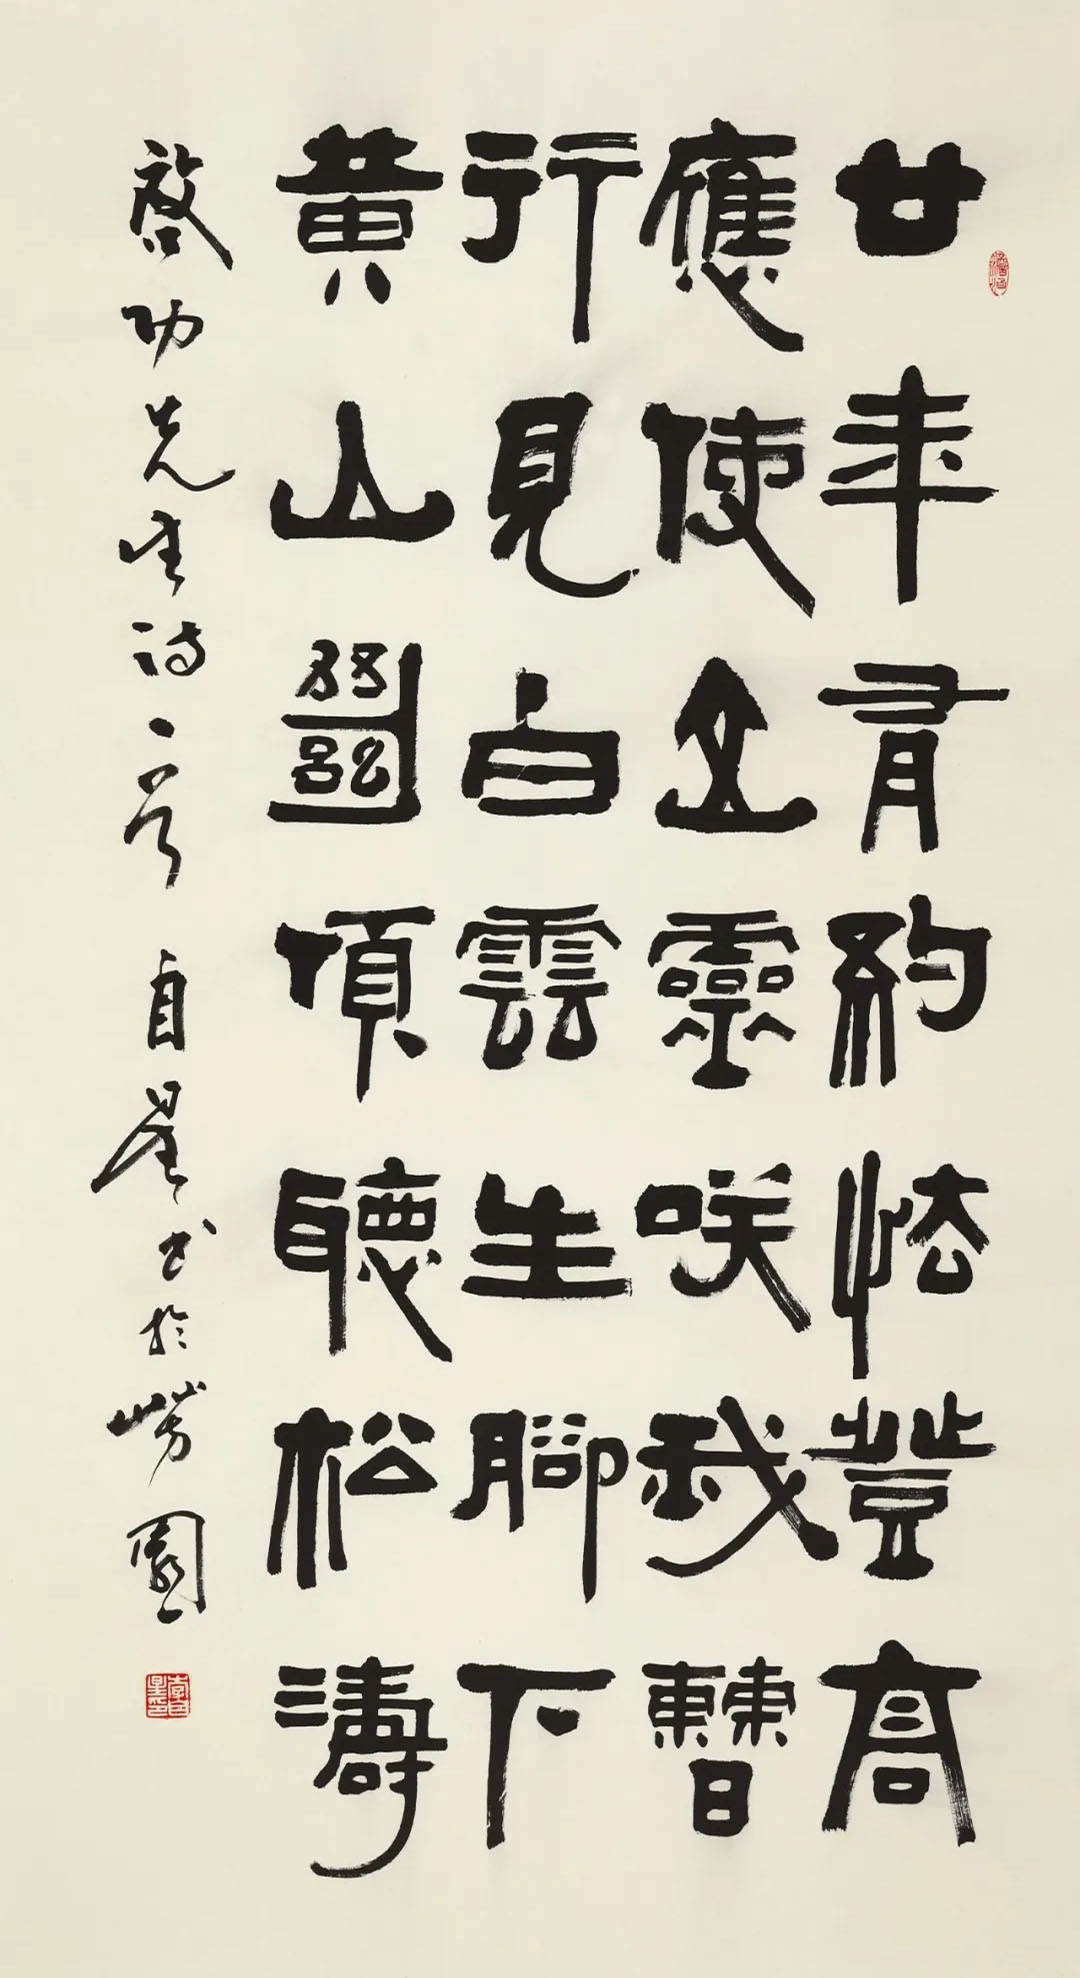 廿年有約怯登高
應使山靈咲我曹
行見白雲生腳下
黃山絕頂聽松濤
啟功先生詩一首 自星書於嶗園